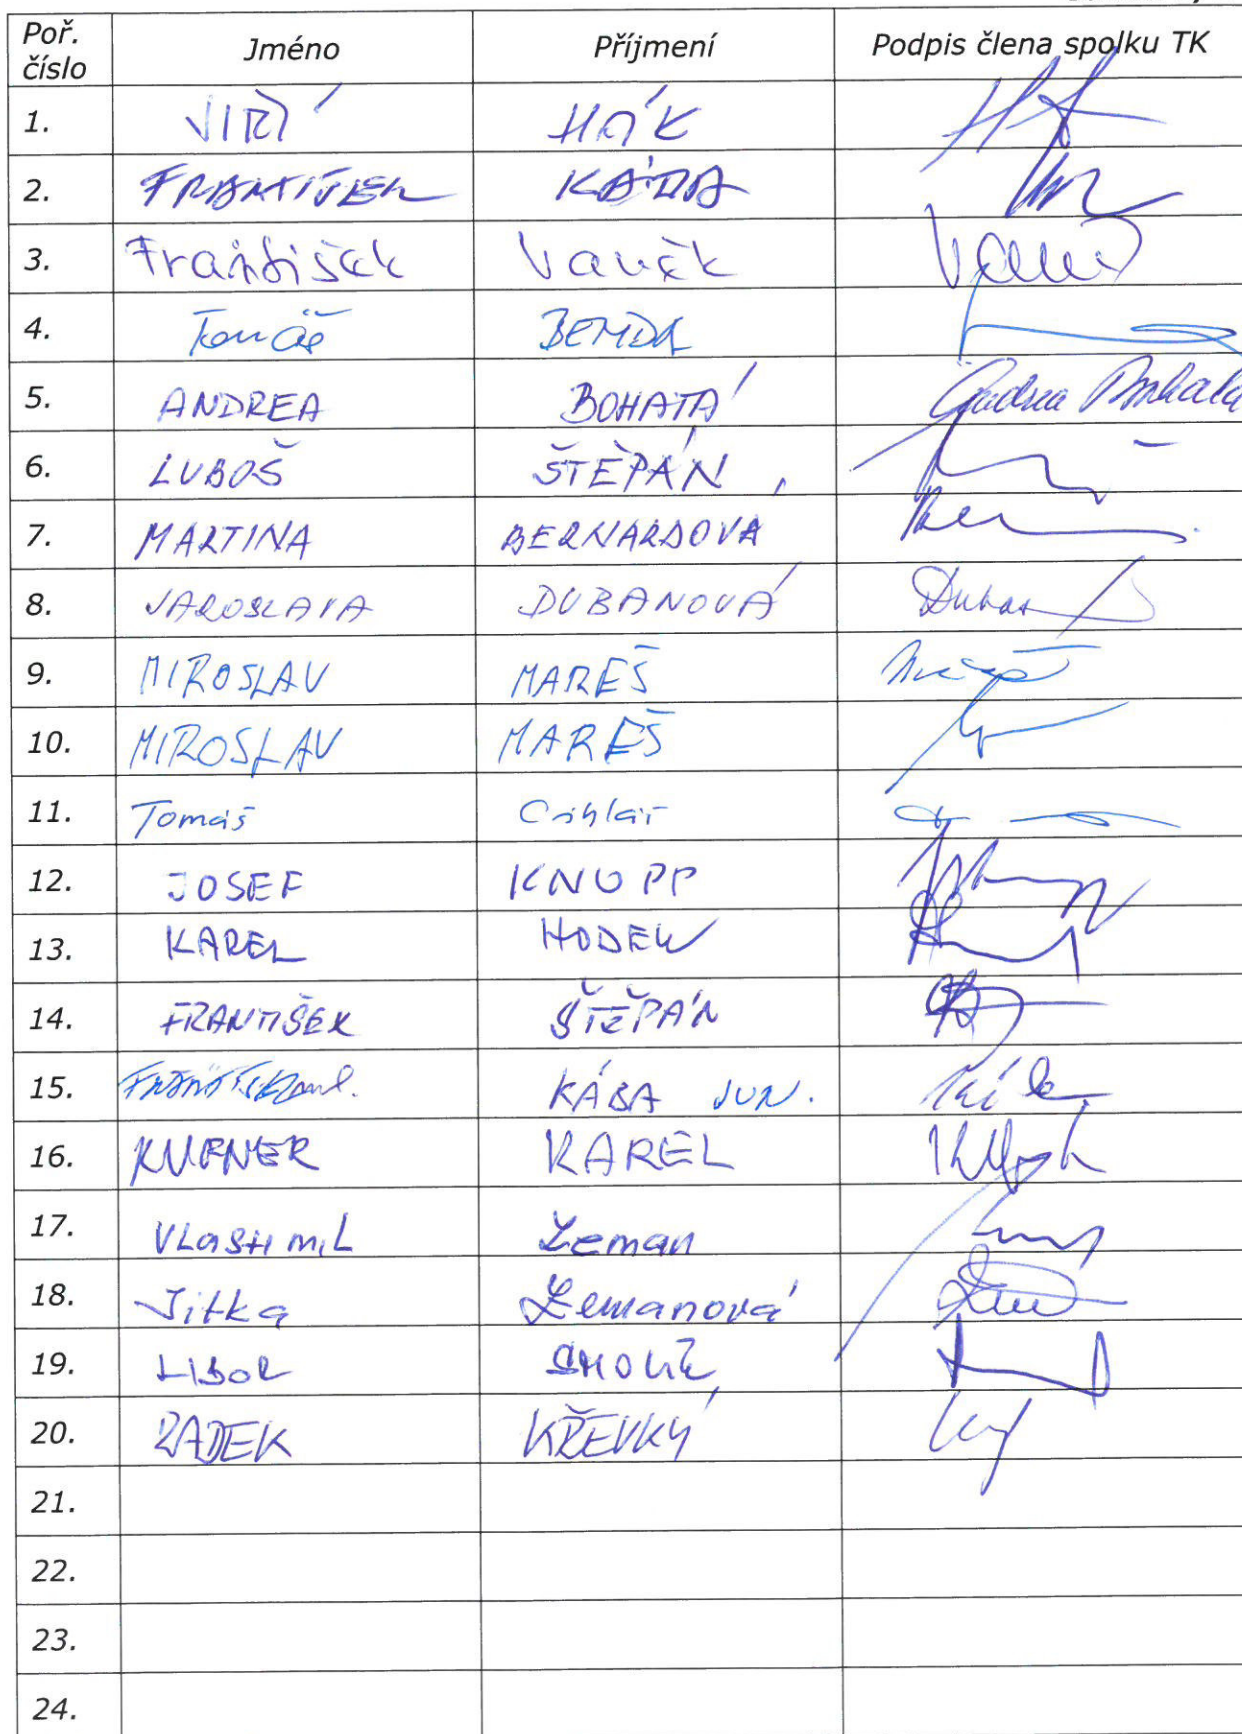 Poř. číslo Jméno Příjmení Podpis člena spolku TK
1. JIŘÍ HÁK
2. FRANTIŠEK KÁBA
3. František Vaněk
4. Tomáš BEMDA
5. ANDREA BOHATÁ Andrea Bohatá
6. LUBOŠ ŠTĚPÁN
7. MARTINA BERNARDOVÁ
8. JAROSLAVA DUBANOVÁ
9. MIROSLAV MAREŠ
10. MIROSLAV MAREŠ
11. Tomáš Cihlář
12. JOSEF KNOPP
13. KAREL
14. FRANTIŠEK ŠTĚPÁN
15. KÁBA JUN.
16. KUFNER KAREL
17. VLastimiL Zeman
18. Jitka Zemanová
19. LIBOR
20. RADEK KŘEVKÝ
21.
22.
23.
24.